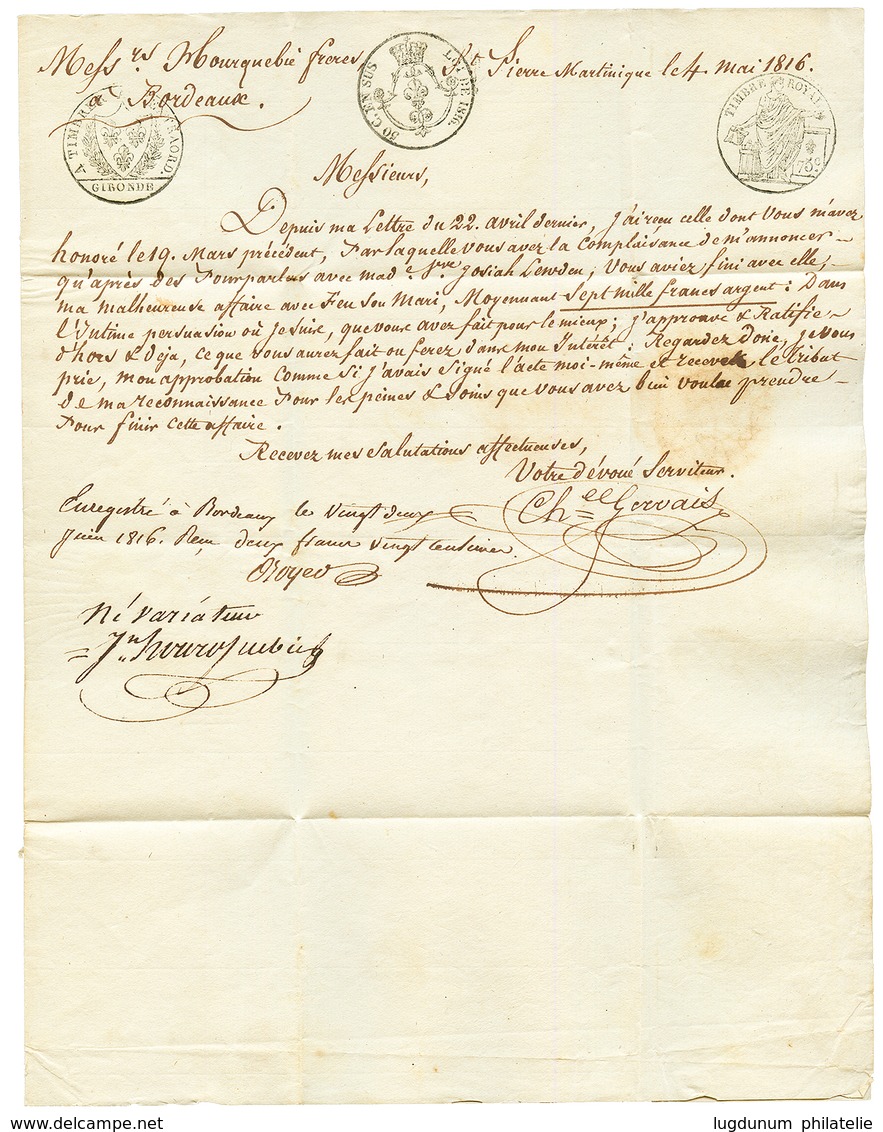 Mess.rs Hourquebié freres St. Pierre Martinique le 4 mai 1816.
à Bordeaux.
50 C. EN SUS LOI DE 1816.
A TIMBRE EXTRAORD.
GIRONDE
TIMBRE ROYAL
75c
Messieurs,
Depuis ma Lettre du 22. avril dernier, j'ai reçu celle dont Vous m'avez
honoré le 19. Mars précédent, Par laquelle vous avez la Complaisance de m'annoncer
qu'après des Pourparlers avec mad.e Josiah, Vous aviez fini avec elle,
ma malheureuse affaire avec Feu Son Mari, Moyennant Sept mille francs argent : Dans
l'Intime persuasion où je suis, que vous avez fait pour le mieux; j'approuve & Ratifie
d'hors & Deja, ce que vous aurez fait ou ferez dans mon Intérêt : Regardez Donc, je Vous
prie, mon approbation Comme si j'avais signé l'acte moi-même et recevez le tribut
de ma reconnaissance Pour les peines & soins que vous avez bien voulu prendre
Pour finir cette affaire.
Recevez mes salutations affectueuses,
Votre dévoué Serviteur.
Ch.el Gervais
Enregistré à Bordeaux le vingt deux
juin 1816. Reçu deux francs vingt centimes.
Né Variateur
Jn. Hourquebié
lugdunum philatelie